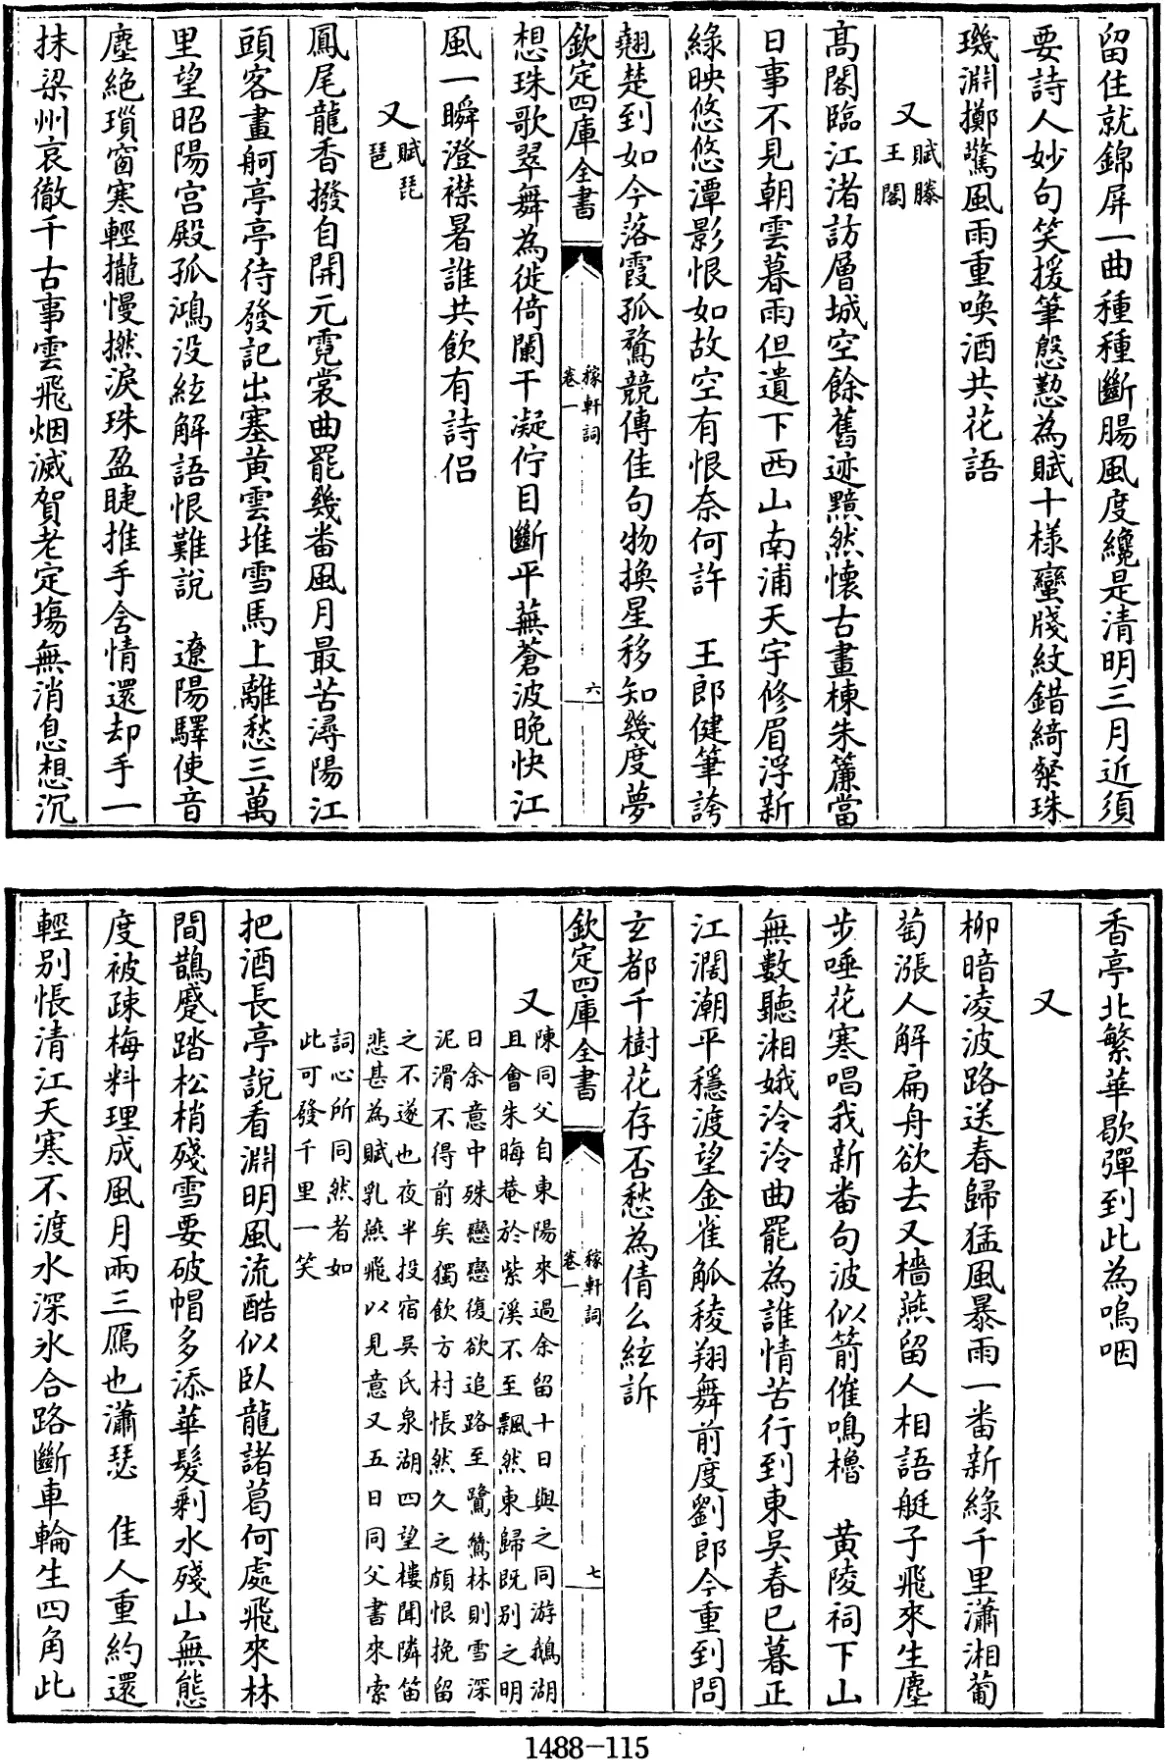 留住就錦屏一曲種種斷腸風度纔是清明三月近須
要詩人妙句笑援筆慇懃為賦十様蠻牋紋錯綺粲珠
璣淵擲驚風雨重喚酒共花語
又賦滕王閣
髙閣臨江渚訪層城空餘舊迹黯然懷古畫棟朱簾當
日事不見朝雲暮雨但遺下西山南浦天宇修眉浮新
綠映悠悠潭影恨如故空有恨奈何許　王郎健筆誇
翹楚到如今落霞孤鶩競傳佳句物換星移知幾度夢
欽定四庫全書　稼軒詞卷一　六
想珠歌翠舞為徙倚闌干凝佇目斷平蕪蒼波晚快江
風一瞬澄襟暑誰共飲有詩侶
又賦琵琶
鳳尾龍香撥自開元霓裳曲罷幾番風月最苦潯陽江
頭客畫舸亭亭待發記出塞黄雲堆雪馬上離愁三萬
里望昭陽宫殿孤鴻没絃解語恨難説　遼陽驛使音
塵絶瑣窗寒輕攏慢撚淚珠盈睫推手含情還却手一
抹梁州哀徹千古事雲飛烟滅賀老定塲無消息想沉
香亭北繁華歇彈到此為嗚咽
又
柳暗凌波路送春歸猛風暴雨一番新綠千里瀟湘葡
萄漲人解扁舟欲去又檣燕留人相語艇子飛來生塵
步唾花寒唱我新番句波似箭催鳴櫓　黄陵祠下山
無數聽湘娥泠泠曲罷為誰情苦行到東吳春已暮正
江濶潮平穩渡望金雀觚稜翔舞前度劉郎今重到問
玄都千樹花存否愁為倩么絃訴
欽定四庫全書　稼軒詞卷一　七
又陳同父自東陽來過余留十日與之同游鵝湖
且會朱晦菴於紫溪不至飄然東歸既别之明
日余意中殊戀戀復欲追路至鷺鷥林則雪深
泥滑不得前矣獨飲方村悵然久之頗恨挽留
之不遂也夜半投宿吳氏泉湖四望樓聞隣笛
悲甚為賦乳燕飛以見意又五日同父書來索
詞心所同然者如
此可發千里一笑
把酒長亭説看淵明風流酷似臥龍諸葛何處飛來林
間鵲蹙踏松梢殘雪要破帽多添華髮剩水殘山無態
度被疎梅料理成風月兩三鴈也瀟瑟　佳人重約還
輕别悵清江天寒不渡水深氷合路斷車輪生四角此
1488-115